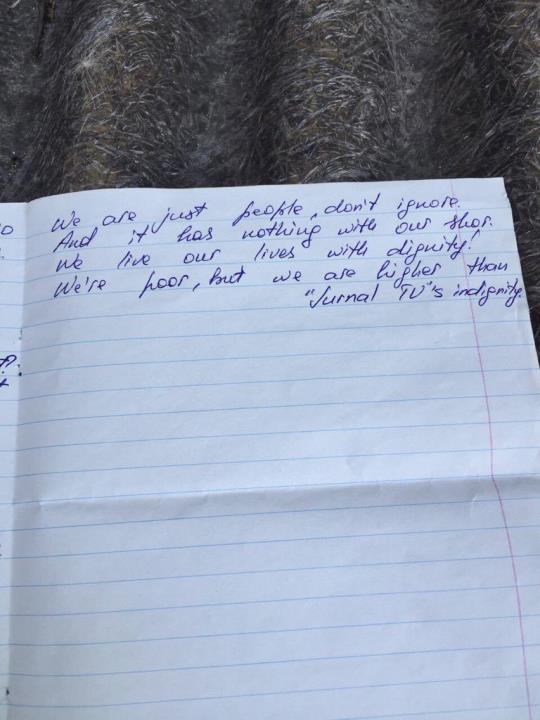 We are just people, don't ignore.
And it has nothing with our shor.
We live our lives with dignity!
We're poor, but we are higher than
"Jurnal TV"'s indignity.